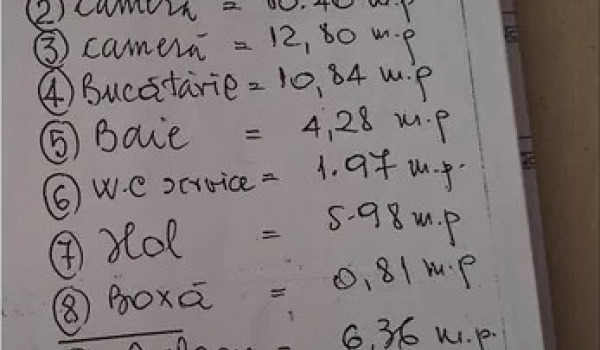 ② Cameră =
③ cameră = 12,80 m.p
④ Bucătărie = 10,84 m.p
⑤ Baie = 4,28 m.p
⑥ W.C service = 1.97 m.p.
⑦ Hol = 5.98 m.p
⑧ Boxă = 0,81 m.p
6,36 m.p.